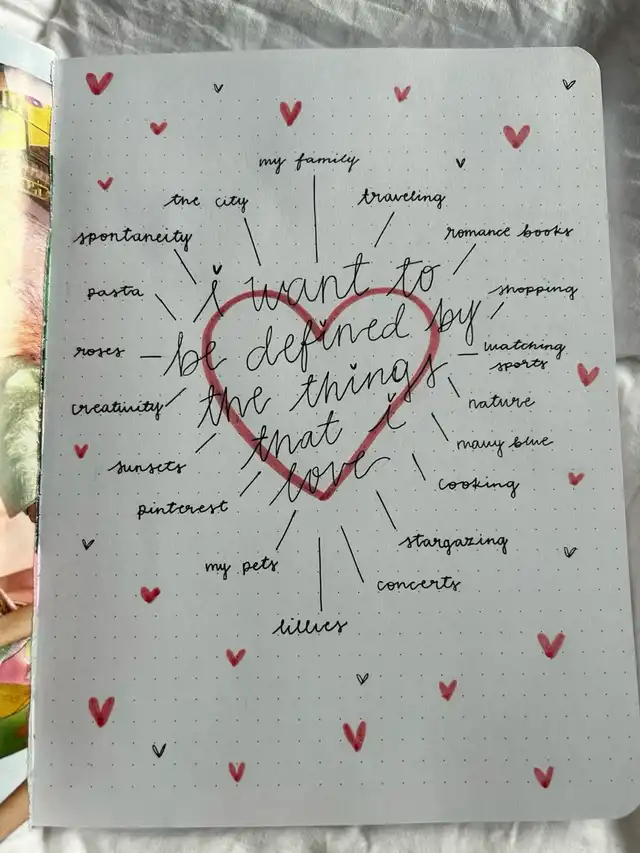 my family
the city
traveling
spontaneity
romance books
pasta
shopping
roses
watching
sports
creativity
nature
sunsets
navy blue
pinterest
cooking
my pets
stargazing
concerts
lillies
i want to
be defined by
the things
that i
love